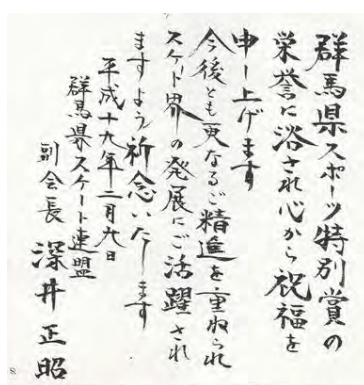 群馬県スポーツ特別賞の
栄誉に浴され心から祝福を
申し上げます
今後とも更なるご精進を重ねられ
スケート界の発展にご活躍され
ますよう祈念いたします
平成十九年二月九日
群馬県スケート連盟
副会長 深井正昭